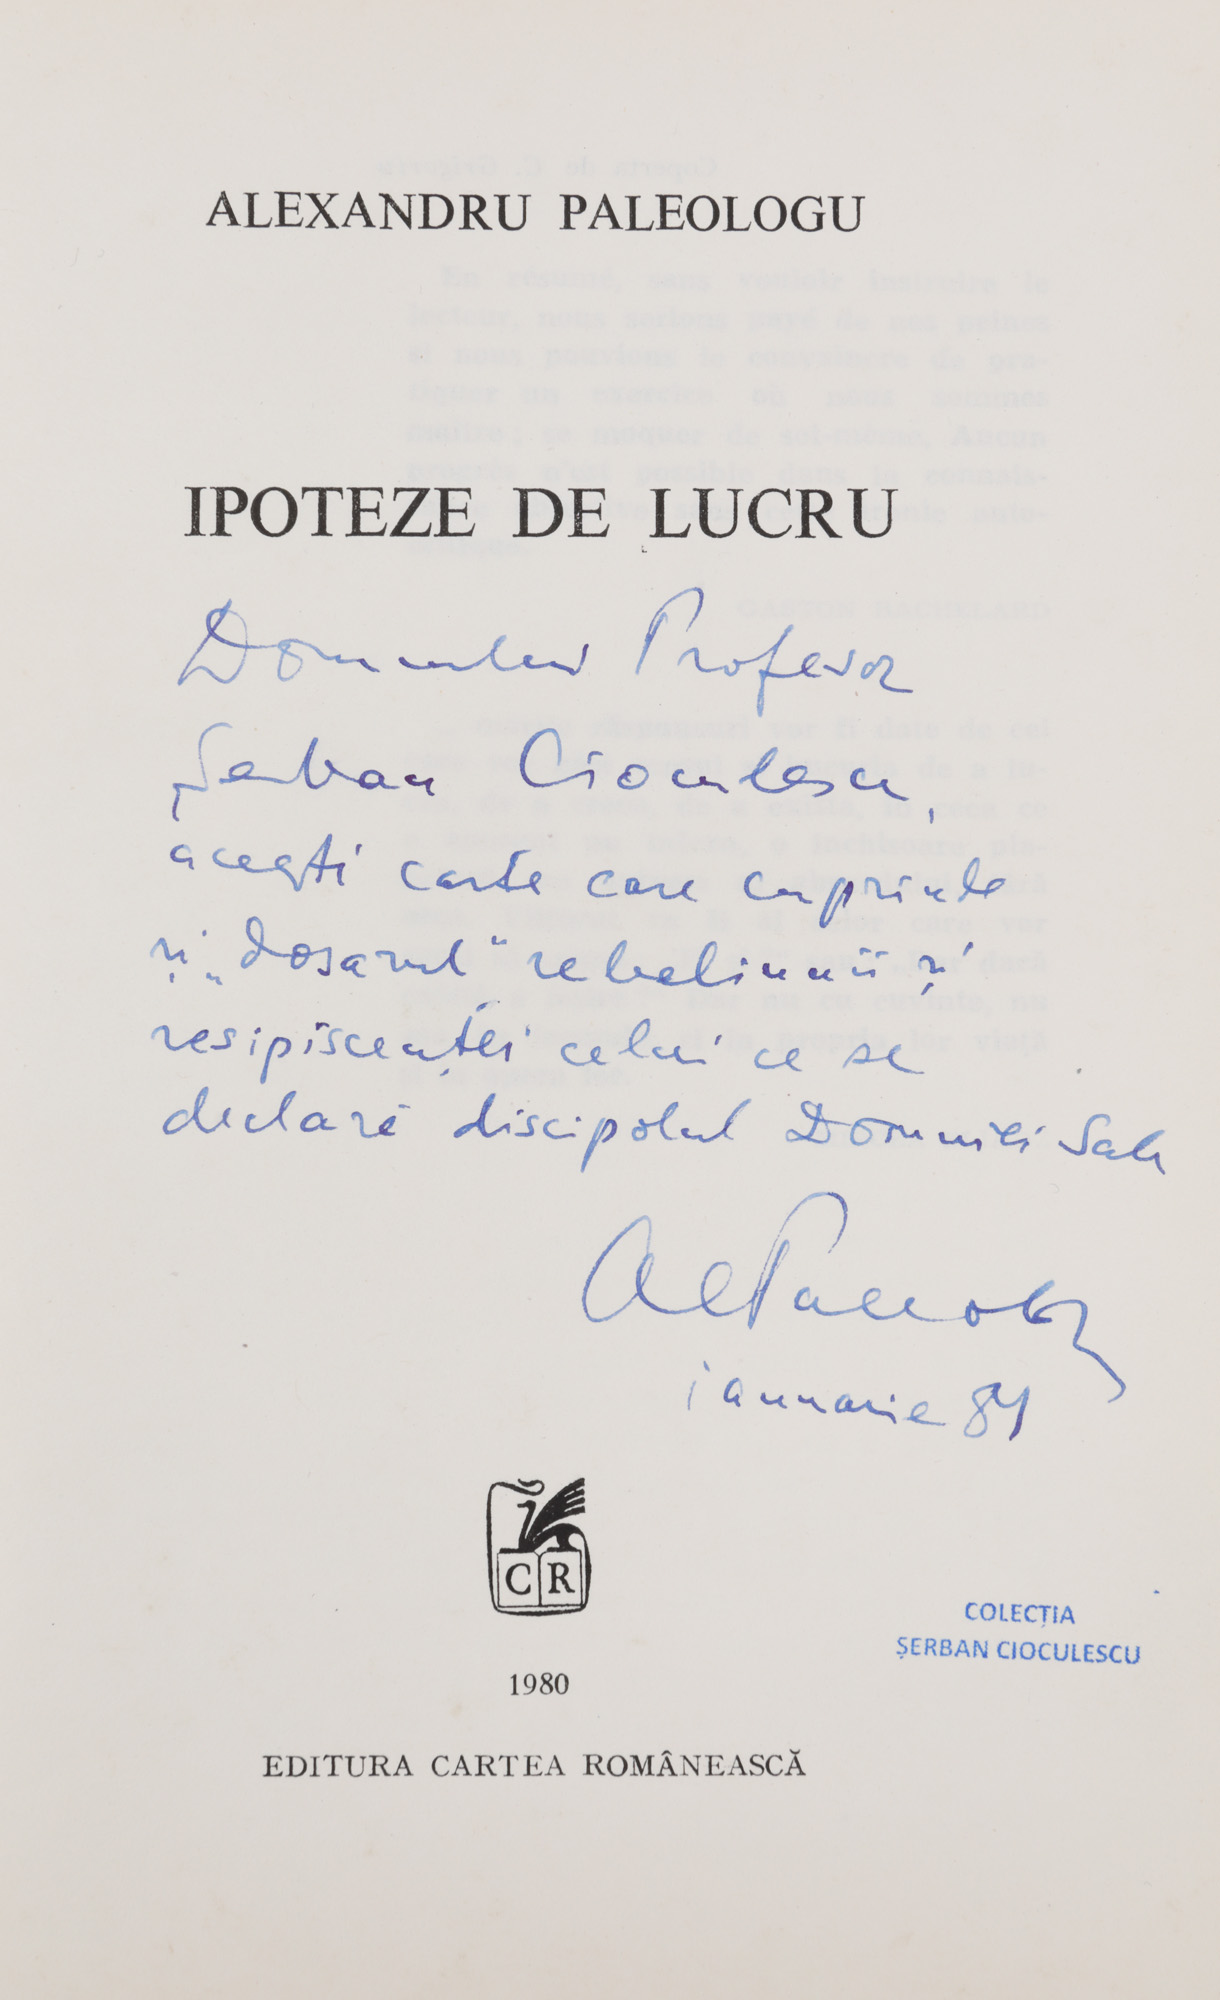 ALEXANDRU PALEOLOGU
IPOTEZE DE LUCRU
Domnului Profesor
Șerban Cioculescu,
acești carte care cuprinde
și „dosarul" rebeliunii și
resipiscenței celui ce se
declară discipolul Domniei Sale
Al Paleologu
ianuarie 81
C R
COLECȚIA
ȘERBAN CIOCULESCU
1980
EDITURA CARTEA ROMÂNEASCĂ